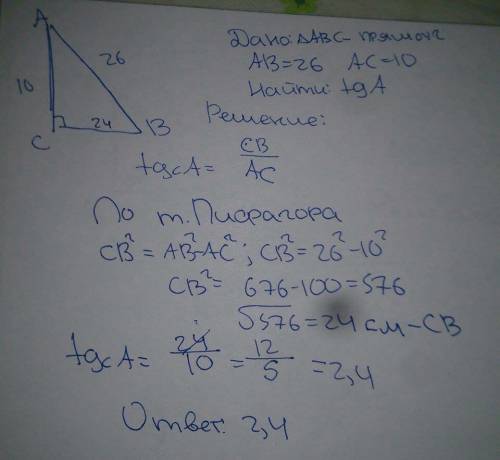 A
26
10
24
C
B
Дано: ΔABC - прямоуг
AB=26 AC=10
Найти: tgA
Решение:
tg∠A = CB/AC
По т. Пифагора
CB²= AB²-AC²; CB²=26²-10²
CB²= 676-100=576
√576=24 см - CB
tg∠A= 24/10 = 12/5 =2,4
Ответ: 2,4